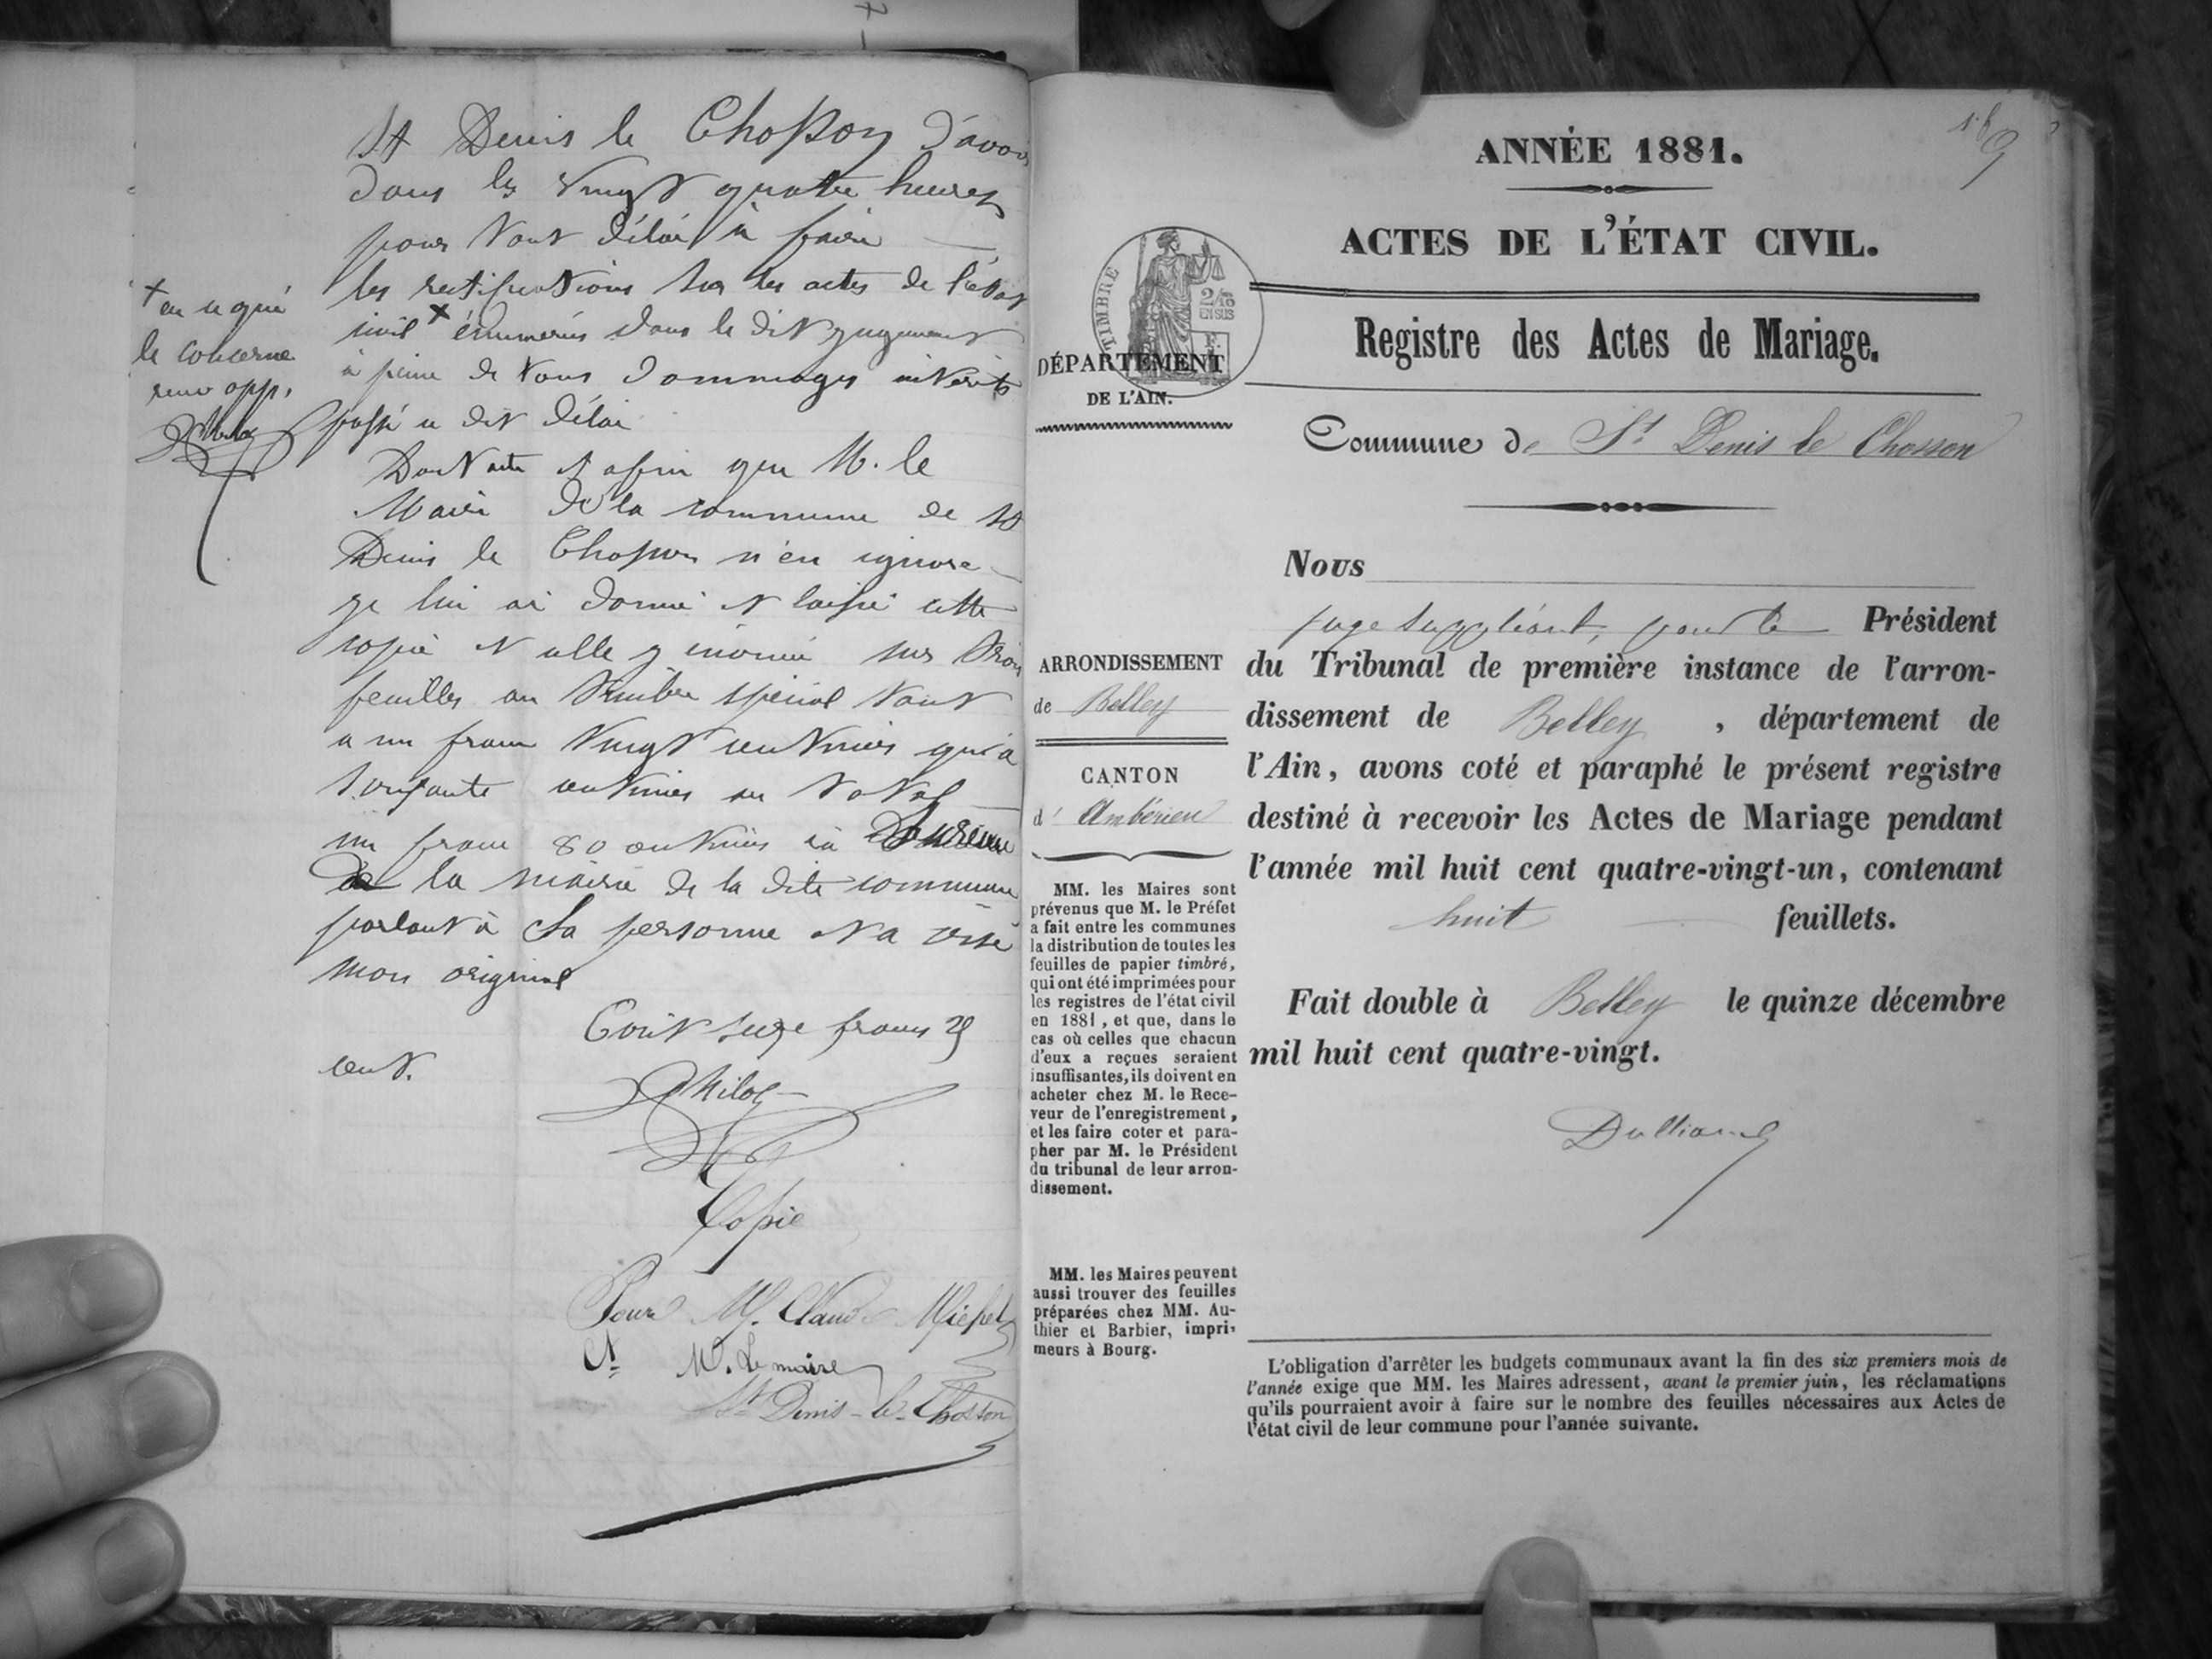 St Denis le Chosson d'avoir
dans les vingt quatre heures
pour tout délai à faire
les rectifications sur les actes de l'état
civil × énumérés dans le dit jugement
à peine de tous dommages intérêts
passé ce dit délai
+ en ce qui
le concerne
renv app.
Dont acte et afin que M. le
Maire de la commune de St
Denis le Chosson n'en ignore
je lui ai donné et laissé cette
copie et celle y énoncée sur trois
feuilles au timbre spécial tout
a un franc vingt centimes qui à
soixante centimes au total
un franc 80 centimes
la mairie de la dite commune
parlant à sa personne et a visé
mon original
Coût seize francs 25
cent.
Copie
Pour M. Claude Michel
Et M. Le maire
St Denis-le-Chosson
189
ANNÉE 1881.
ACTES DE L'ÉTAT CIVIL.
TIMBRE
2/10
EN SUS
DÉPARTEMENT
DE L'AIN.
Registre des Actes de Mariage.
Commune de St Denis le Chosson
Nous
juge suppléant, pour le Président
du Tribunal de première instance de l'arron-
dissement de Belley, département de
l'Ain, avons coté et paraphé le présent registre
destiné à recevoir les Actes de Mariage pendant
l'année mil huit cent quatre-vingt-un, contenant
huit feuillets.
Fait double à Belley le quinze décembre
mil huit cent quatre-vingt.
ARRONDISSEMENT
de Belley
CANTON
d'Ambérieu
MM. les Maires sont
prévenus que M. le Préfet
a fait entre les communes
la distribution de toutes les
feuilles de papier timbré,
qui ont été imprimées pour
les registres de l'état civil
en 1881, et que, dans le
cas où celles que chacun
d'eux a reçues seraient
insuffisantes, ils doivent en
acheter chez M. le Rece-
veur de l'enregistrement,
et les faire coter et para-
pher par M. le Président
du tribunal de leur arron-
dissement.
MM. les Maires peuvent
aussi trouver des feuilles
préparées chez MM. Au-
thier et Barbier, impri-
meurs à Bourg.
L'obligation d'arrêter les budgets communaux avant la fin des six premiers mois de
l'année exige que MM. les Maires adressent, avant le premier juin, les réclamations
qu'ils pourraient avoir à faire sur le nombre des feuilles nécessaires aux Actes de
l'état civil de leur commune pour l'année suivante.